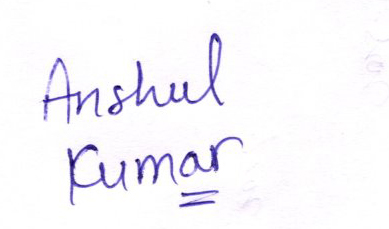 Anshul
Kumar